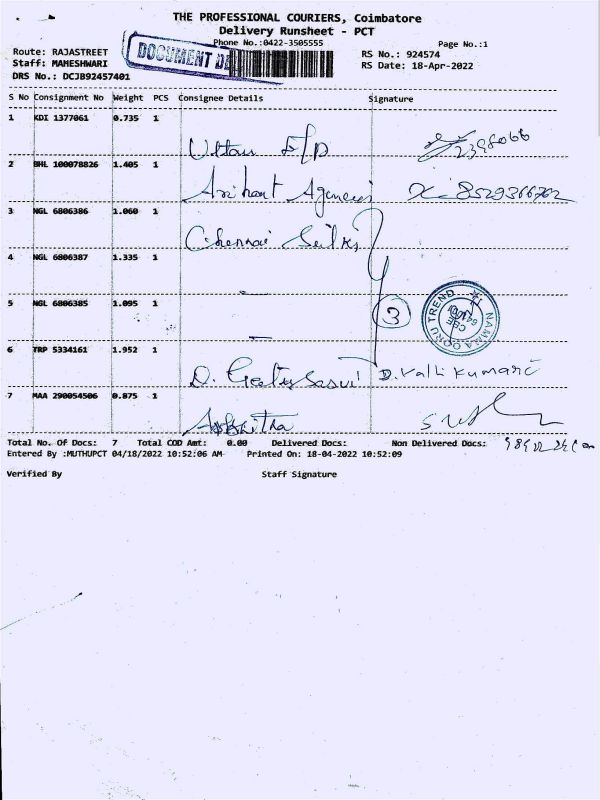 THE PROFESSIONAL COURIERS, Coimbatore
Delivery Runsheet - PCT
Phone No.:0422-3505555
Page No.:1
Route: RAJASTREET
RS No.: 924574
Staff: MAHESHWARI
DOCUMENT
RS Date: 18-Apr-2022
DRS No.: DCJB92457401
S No Consignment No Weight PCS Consignee Details Signature
1 KDI 1377061 0.735 1
2 BHL 100078826 1.405 1
Arihant Agencies
3 NGL 6806386 1.060 1
Chennai Silks
4 NGL 6806387 1.335 1
5 NGL 6806385 1.095 1
3
NAMMA OORU TREND
6 TRP 5334161 1.952 1
D. D. Valli Kumari
7 MAA 290054506 0.875 1
Total No. Of Docs: 7 Total COD Amt: 0.00 Delivered Docs: Non Delivered Docs:
Entered By :MUTHUPCT 04/18/2022 10:52:06 AM Printed On: 18-04-2022 10:52:09
Verified By Staff Signature